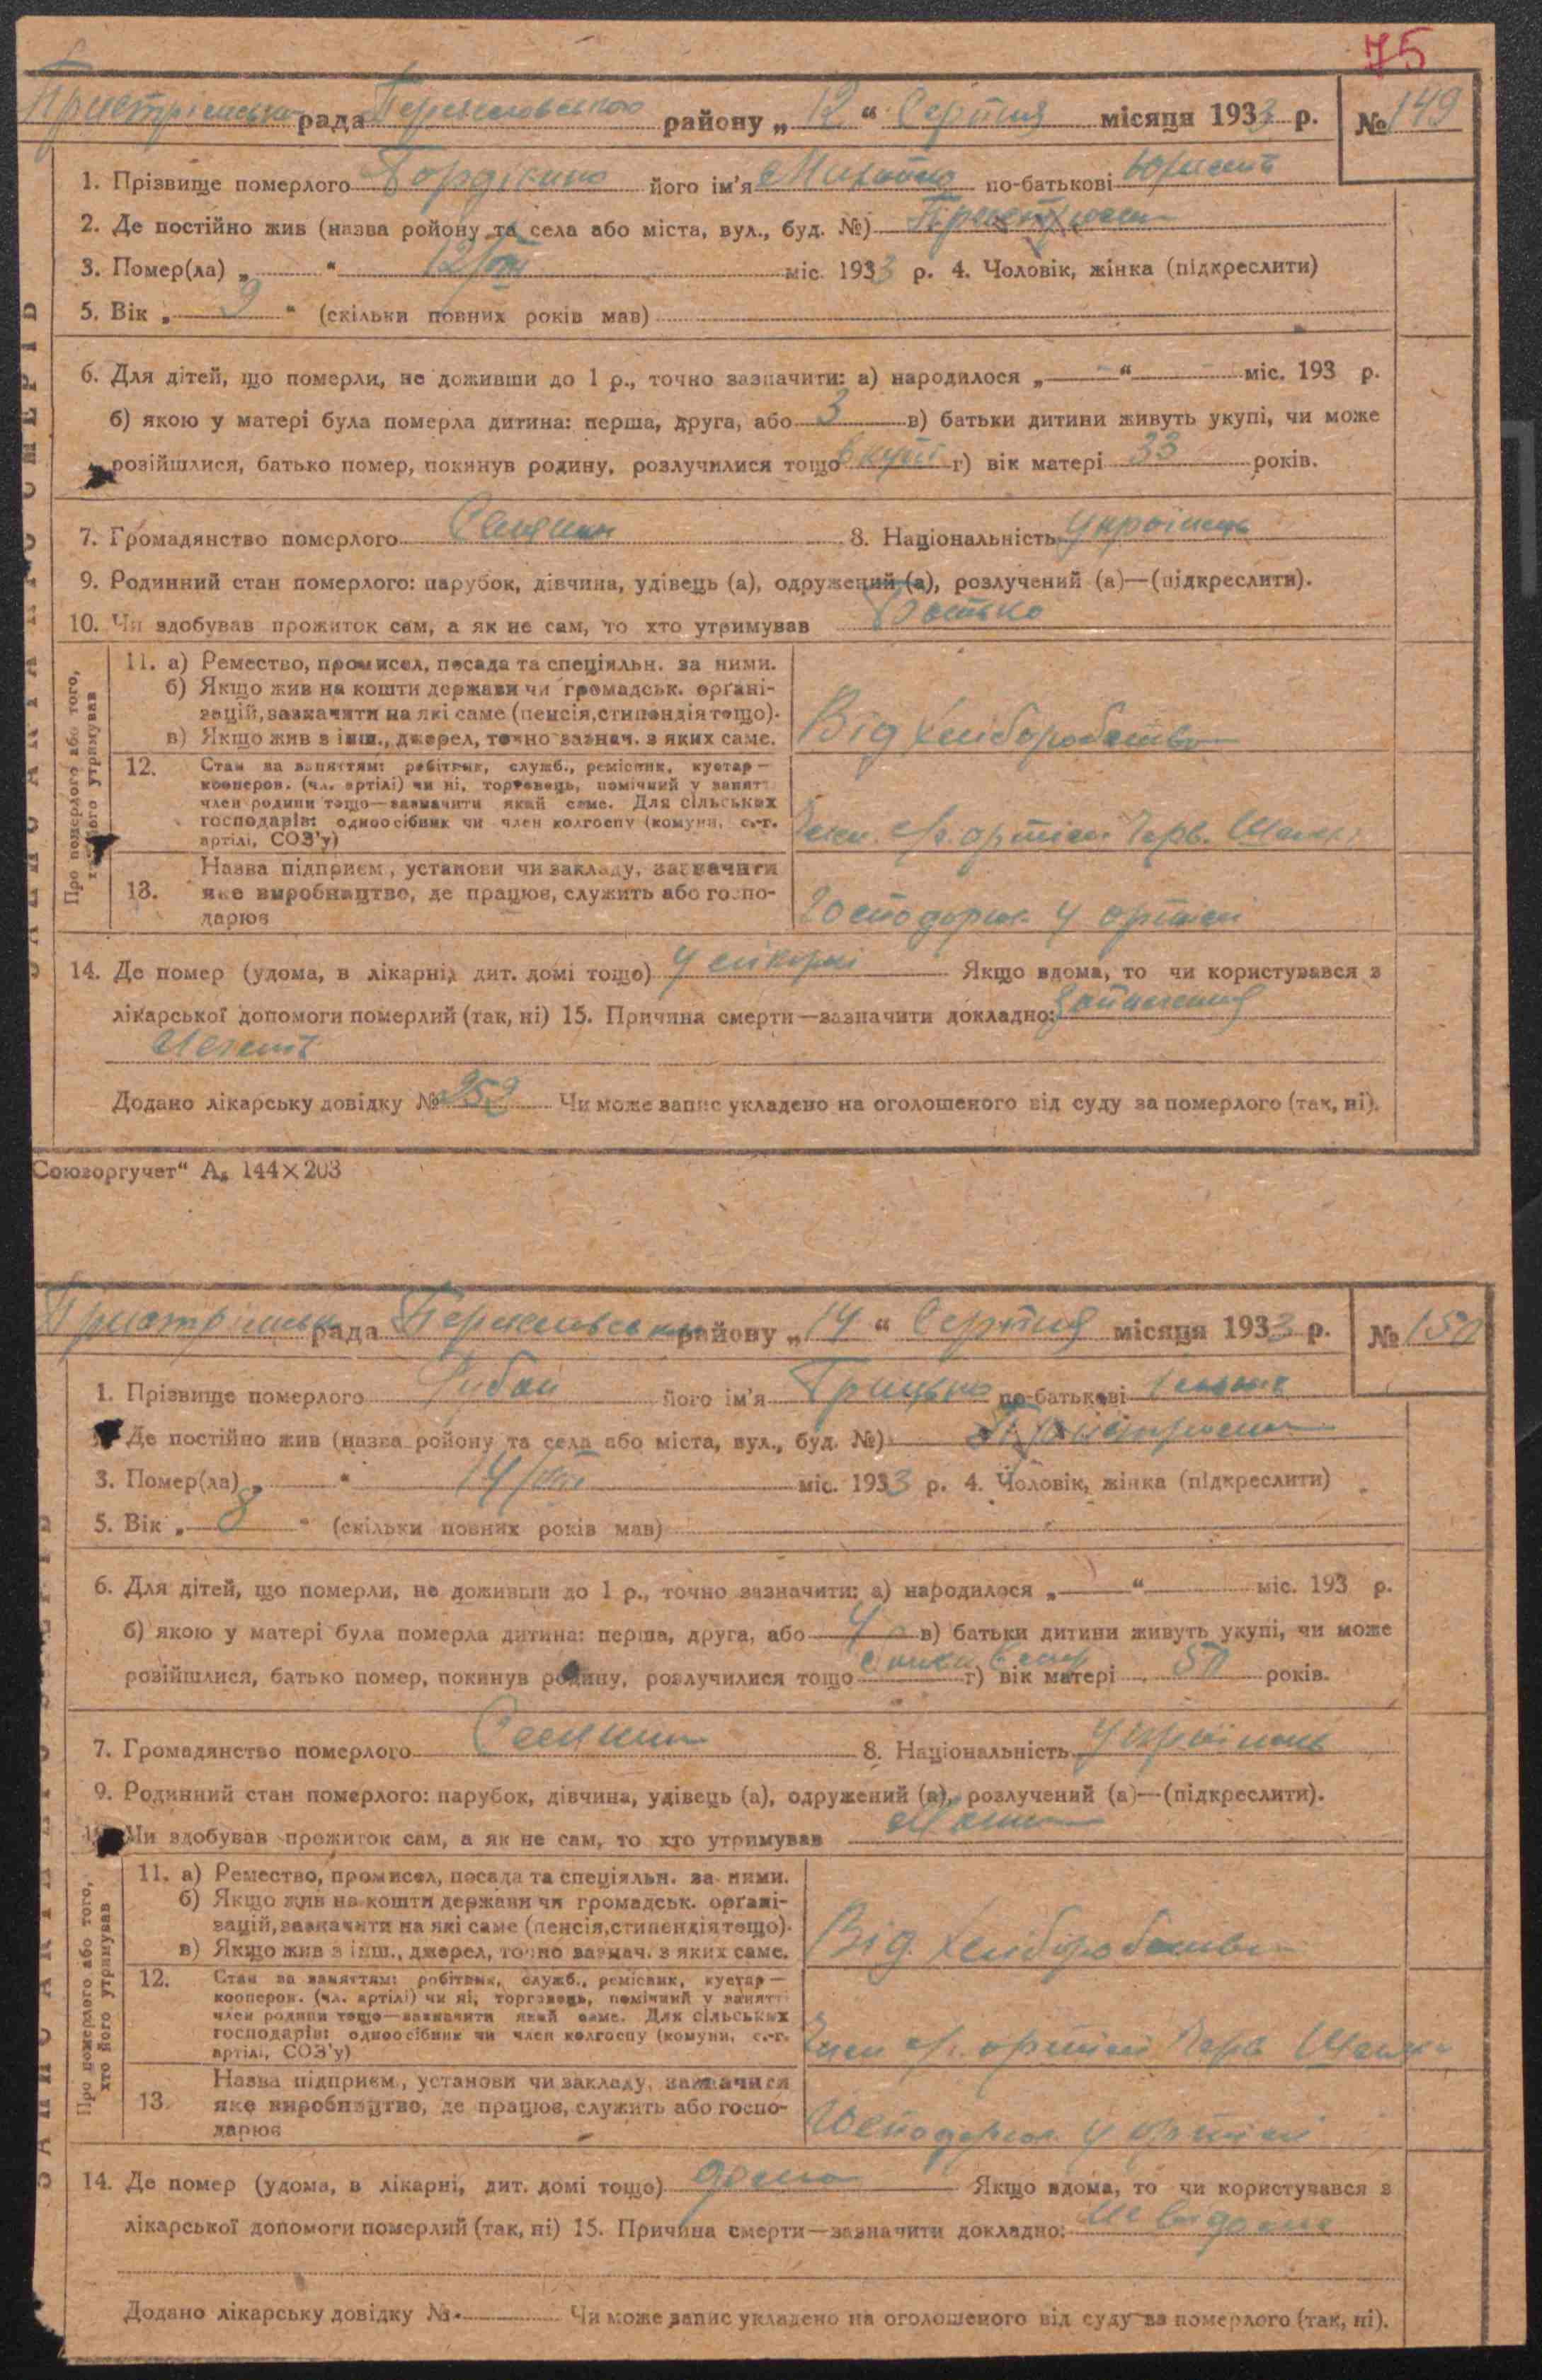 75
рада району „ 12 “ Серпня місяця 1933 р. № 149
1. Прізвище померлого його ім'я Михайло по-батькові
2. Де постійно жив (назва ройону та села або міста, вул., буд. №)
3. Помер(ла) „ “ 12/VIII міс. 1933 р. 4. Чоловік, жінка (підкреслити)
5. Вік „ 9 “ (скільки повних років мав)
6. Для дітей, що померли, не доживши до 1 р., точно зазначити: а) народилося „ “ міс. 193 р.
б) якою у матері була померла дитина: перша, друга, або 3 в) батьки дитини живуть укупі, чи може
розійшлися, батько помер, покинув родину, розлучилися тощо вкупі г) вік матері 33 років.
7. Громадянство померлого Селянин 8. Національність Українець
9. Родинний стан померлого: парубок, дівчина, удівець (а), одружений (а), розлучений (а)—(підкреслити).
10. Чи здобував прожиток сам, а як не сам, то хто утримував Батько
Про померлого або того, хто його утримував
11. а) Ремество, промисел, посада та спеціяльн. за ними.
б) Якщо жив на кошти держави чи громадськ. орґані-
зацій, зазначити на які саме (пенсія, стипендія тощо).
в) Якщо жив з інш., джерел, точно зазнач. з яких саме.
Від Хліборобства
12. Стан за заняттям: робітник, служб., ремісник, кустар—
кооперов. (чл. артілі) чи ні, торговець, помічний у занятт
член родини тощо—зазначити який саме. Для сільських
господарів: одноосібник чи член колгоспу (комуни, с.-г.
артілі, СОЗ'у)
артілі Черв.
13. Назва підприєм, установи чи закладу, зазначити
яке виробництво, де працює, служить або госпо-
дарює
Господарює у артілі
14. Де помер (удома, в лікарні, дит. домі тощо) У лікарні Якщо вдома, то чи користувався з
лікарської допомоги померлий (так, ні) 15. Причина смерти—зазначити докладно: Запалення
Легенів
Додано лікарську довідку № Чи може запис укладено на оголошеного від суду за померлого (так, ні).
Союзоргучет“ А₅ 144×203
рада району „ 14 “ Серпня місяця 1933 р. № 150
1. Прізвище померлого його ім'я Грицько по-батькові
Де постійно жив (назва ройону та села або міста, вул., буд. №)
3. Помер(ла) „ “ 14/VIII міс. 1933 р. 4. Чоловік, жінка (підкреслити)
5. Вік „ 8 “ (скільки повних років мав)
6. Для дітей, що померли, не доживши до 1 р., точно зазначити: а) народилося „ “ міс. 193 р.
б) якою у матері була померла дитина: перша, друга, або 4 в) батьки дитини живуть укупі, чи може
розійшлися, батько помер, покинув родину, розлучилися тощо г) вік матері 50 років.
7. Громадянство померлого Селянин 8. Національність Українець
9. Родинний стан померлого: парубок, дівчина, удівець (а), одружений (а), розлучений (а)—(підкреслити).
Чи здобував прожиток сам, а як не сам, то хто утримував
Про померлого або того, хто його утримував
11. а) Ремество, промисел, посада та спеціяльн. за ними.
б) Якщо жив на кошти держави чи громадськ. орґані-
зацій, зазначити на які саме (пенсія, стипендія тощо).
в) Якщо жив з інш., джерел, точно зазнач. з яких саме.
Від Хліборобства
12. Стан за заняттям: робітник, служб., ремісник, кустар—
кооперов. (чл. артілі) чи ні, торговець, помічний у занятт
член родини тощо—зазначити який саме. Для сільських
господарів: одноосібник чи член колгоспу (комуни, с.-г.
артілі, СОЗ'у)
артілі Черв
13. Назва підприєм, установи чи закладу, зазначити
яке виробництво, де працює, служить або госпо-
дарює
Господарює у артілі
14. Де помер (удома, в лікарні, дит. домі тощо) дома Якщо вдома, то чи користувався з
лікарської допомоги померлий (так, ні) 15. Причина смерти—зазначити докладно: Не видоме
Додано лікарську довідку № Чи може запис укладено на оголошеного від суду за померлого (так, ні).